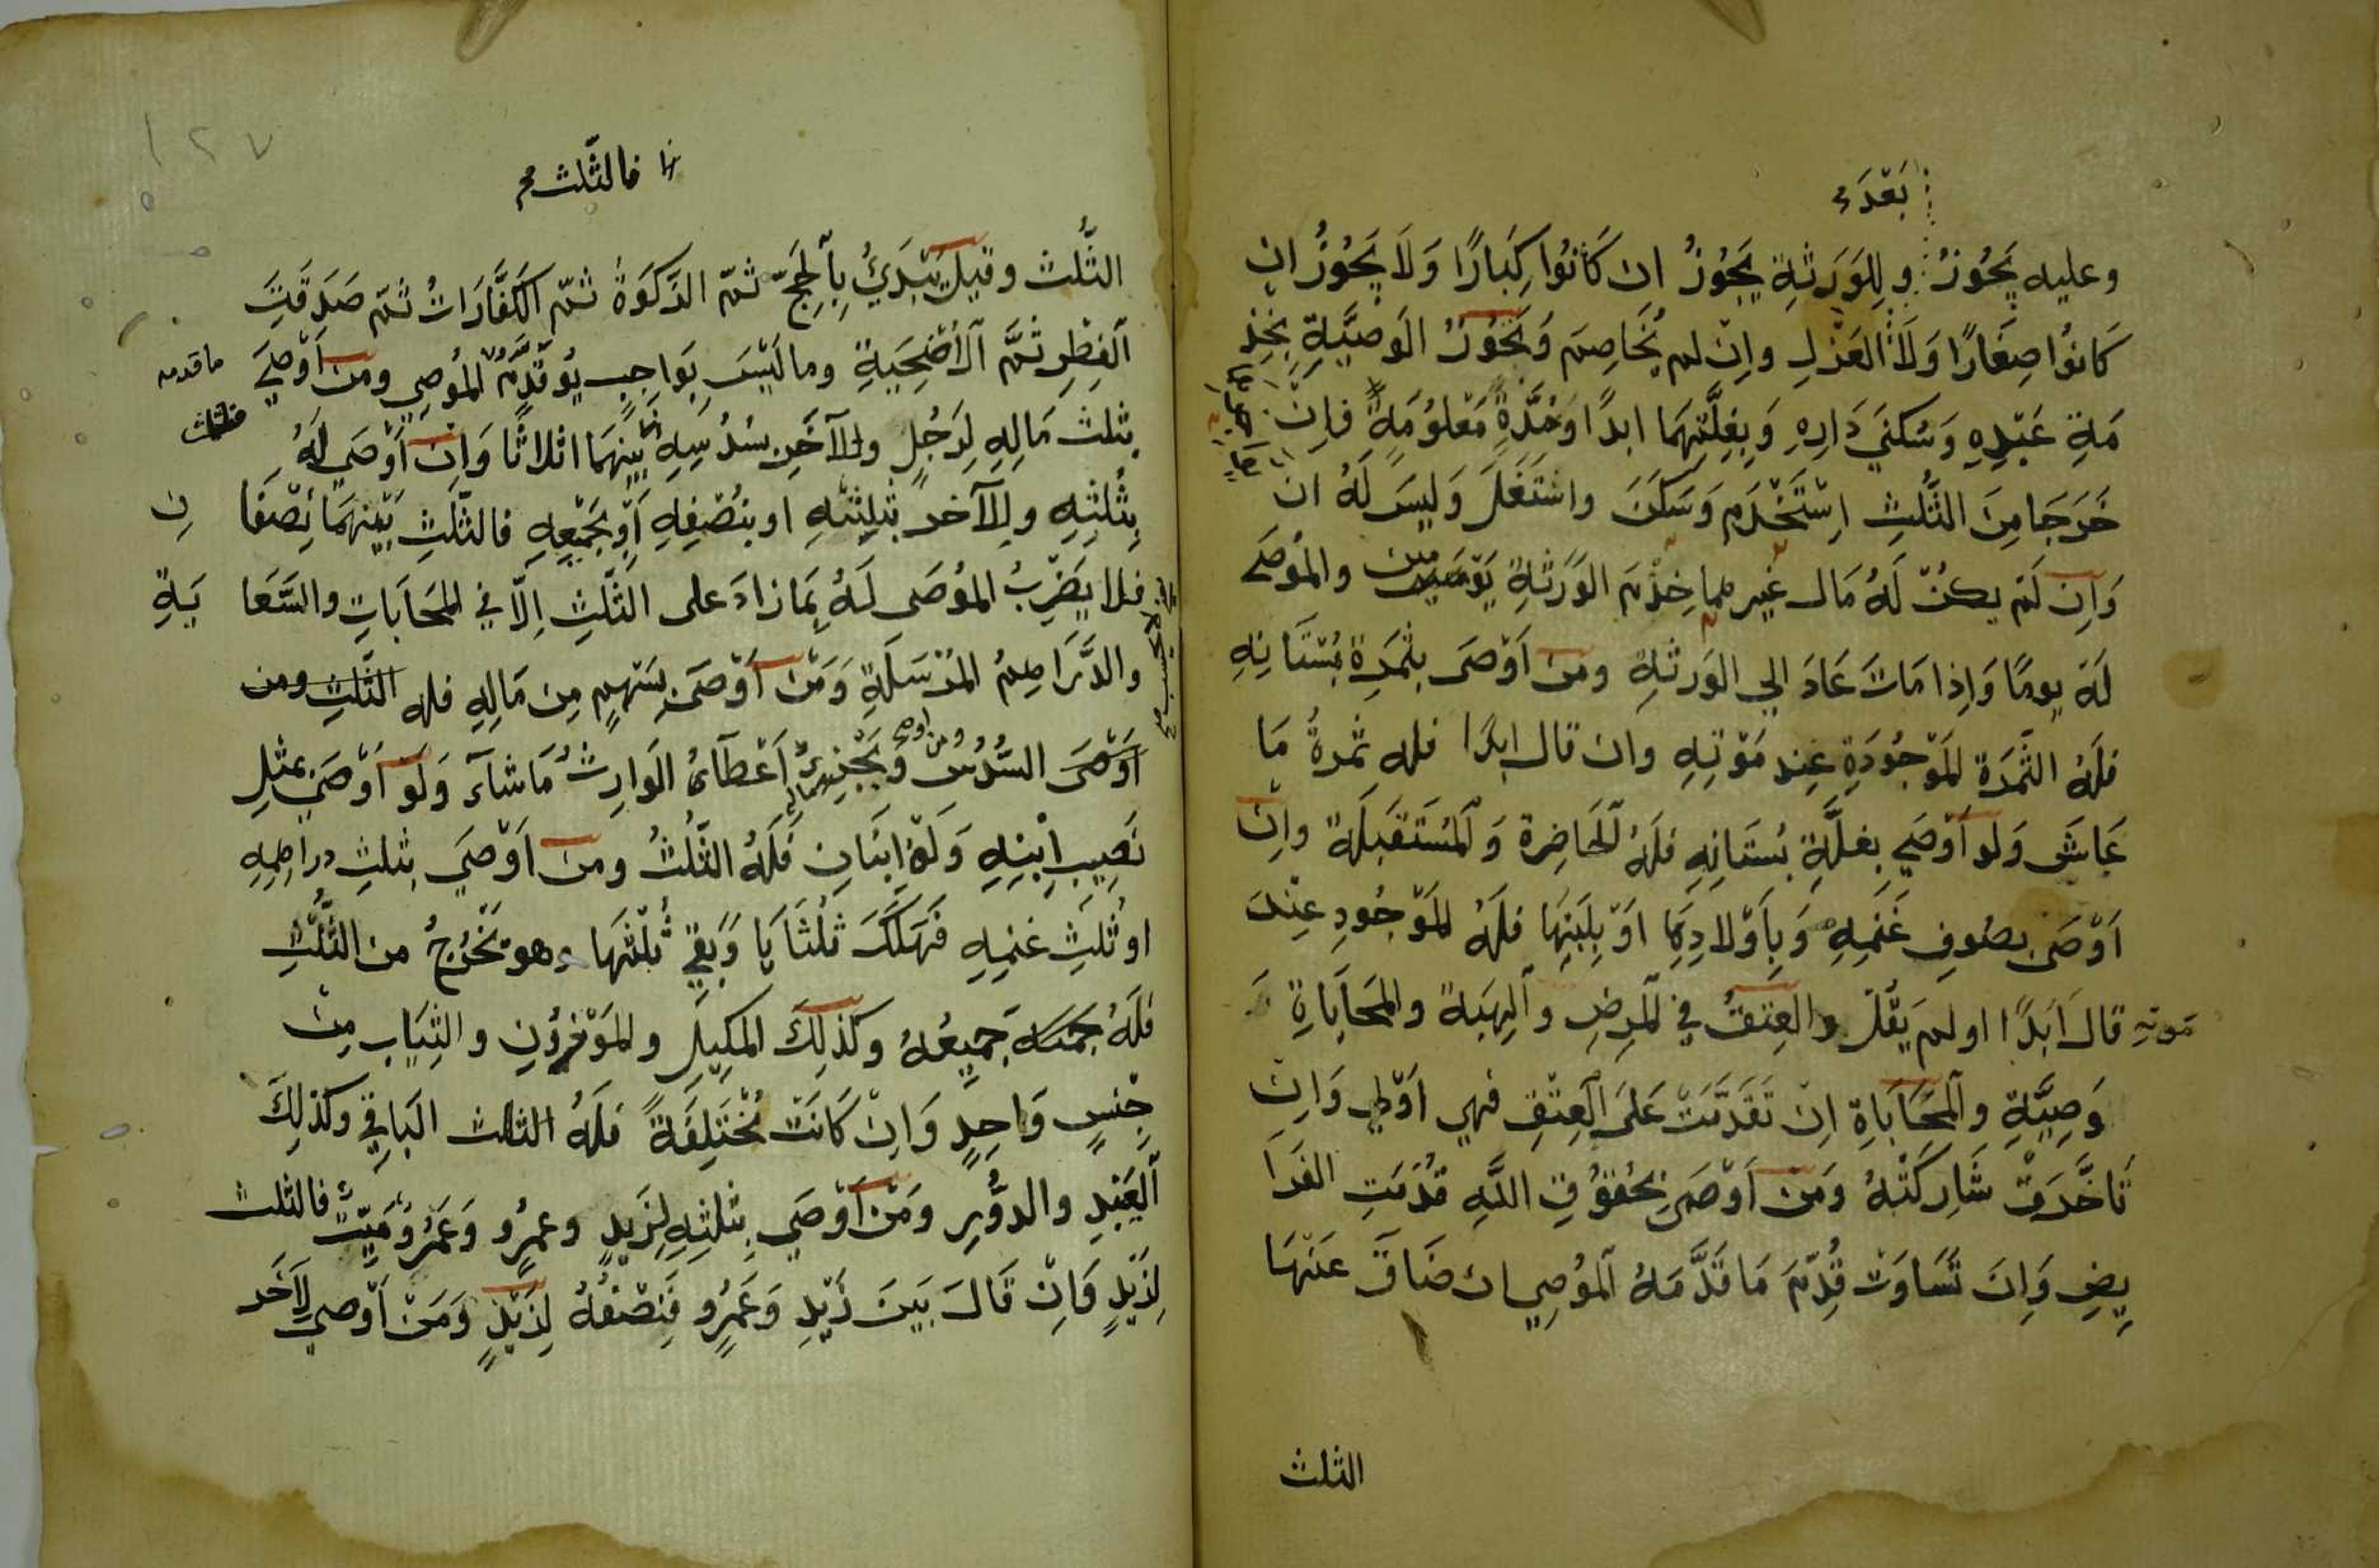 بَعْدَهُ
وعليه يَجُوزُ وَلِلوَرَثَةِ يَجُوزُ اِن كَانُوا كِبَارًا وَلَا يَجُوزُ اِن
كَانوُا صِغَارًا وَلَا العَزْلِ واِنْ لم يُخَاصِم وَتَجُوزُ الوَصِيَّةِ بِخِدْ
مَةِ عَبْدِهِ وَسُكنَي دَارِهِ وَبِغِلَّتِهِمَا ابدًا اَوْ مُدَّةٍ مَعْلوُمَةٍ فاِنْ
خَرَجَا مِنَ الثُّلُثِ اِسْتَخْدَمَ وَسَكَنَ واسْتَغَلَّ وَلَيسَ لَهُ ان
وَاِن لَمْ يكنْ لَهُ مَال غير هما خِدْمَ الوَرَثَةِ يَوْمَيِن والمُوصَى
لَهُ يومًا وَاِذا مَاتَ عَادَ الي الوَرثةِ ومن اَوْصَى بثمَرةِ بُسْتَانِهِ
فلهُ الثَّمَرَة المَوْجُودَةِ عِند مَوْتِهِ وان قال ابدًا فله ثمرةُ مَا
عَاشَ وَلَو اَوْصَي بغلَّةِ بُستَانِهِ فلهُ الحَاضِرة وَالمُسْتَقبَلَة واِنْ
اَوْصَى بصُوفِ غَنَمِهِ وَبِأَوْلادِهَا اَوْ بِلَبَنِهَا فلَهُ المَوْجُودِ عِنْدَ
مَوته قالَ اَبَدًا او لم يَقُلْ والعِتقُ في المرضِ والهِبَة والمحَابَاةِ
وَصِيَّةِ والمحَابَاةِ اِنْ تَقَدَّمَتْ عَلَى العِتْقِ فهي اَوْلي وَاِنْ
تَأخَّرَتْ شَارَكَتْهُ وَمَنْ اَوْصَى بِحُقوُقِ اللَّهِ قُدّمَتِ الفَرَا
يِضِ وَاِن تَسَاوَتْ قُدِّمَ مَا قَدَّمَهُ المُوصِي ان ضَاقَ عَنْهَا
الثلث
١٢٧
فالثّلث
الثُّلث وقيل يَبْدَئُ بِالحَجّ ثمّ الزكَوَة ثمّ الكَفَّارَاتُ ثمّ صَدَقَتِ
الفِطْرِ ثُمَّ الأضْحِيَةِ وما لَيْسَ بِوَاجِب يُوقدّمُ المُوصِي ومن اَوْصَيَ
ما قدمه
بثلث مَالِهِ لِرَجُلٍ وللآخَرِ بسُدُسِهِ بَيْنهمَا اثلاثًا وَاِن اَوْصَي لَهُ
بثُلثِهِ وللآخر بثلثيْهِ او بنُصْفِهِ أو بجَمْيعِهِ فالثّلثِ بَيْنهمَا نِصْفَا
نِ
فلا يَضْرِبُ المُوصَى لَهُ بِمَا زادَ على الثّلثِ اِلاّ في المحَابَاتِ والسَّعَا يَةِ
والدَّرَاهِمُ المُرْسَلَةِ وَمَنْ اَوْصَى بِسَهمٍ مِن مَالِهِ فله الثّلثِ ومن
اَوْصَى السُّدُسُ ومن اوصى بِجُزءٍ اَعْطَاهُ الوَارِثُ مَا شاءَ وَلَو اَوْصَيَ بمثلِ
نَصِيبِ اِبْنِهِ وَلَهُ اِبْنَانِ فَلَهُ الثُّلثُ ومن اَوْصَيَ بثلثِ دراهِمِهِ
او ثُلثِ غنمِهِ فَهَلَكَ ثلثَا يَا وَبَقيَ ثُلثهَا وهو يَخْرُجُ من الثُّلثِ
فلَهُ جَمِيعُهُ وكذلِكَ المَكِيلَ والمَوْزُونِ والثيَابِ مِنْ
جِنْسٍ وَاحِدٍ وَاِنْ كَانَتْ مُخْتَلِفَةً فلَهُ الثلث البَاقِي وكذلِكَ
العَبْيدِ والدوُّرِ ومَنْ اَوْصَي بثلثِهِ لِزَيدٍ وعمرٍو وَعَمْرٌو مَيّتٌ فالثلث
لِزَيْدٍ وَاِنْ قَالَ بَيَنَ زَيْدِ وَعَمْرٍو فَنِصْفُهُ لِزَيْدٍ وَمَنْ اَوْصي لآخَر